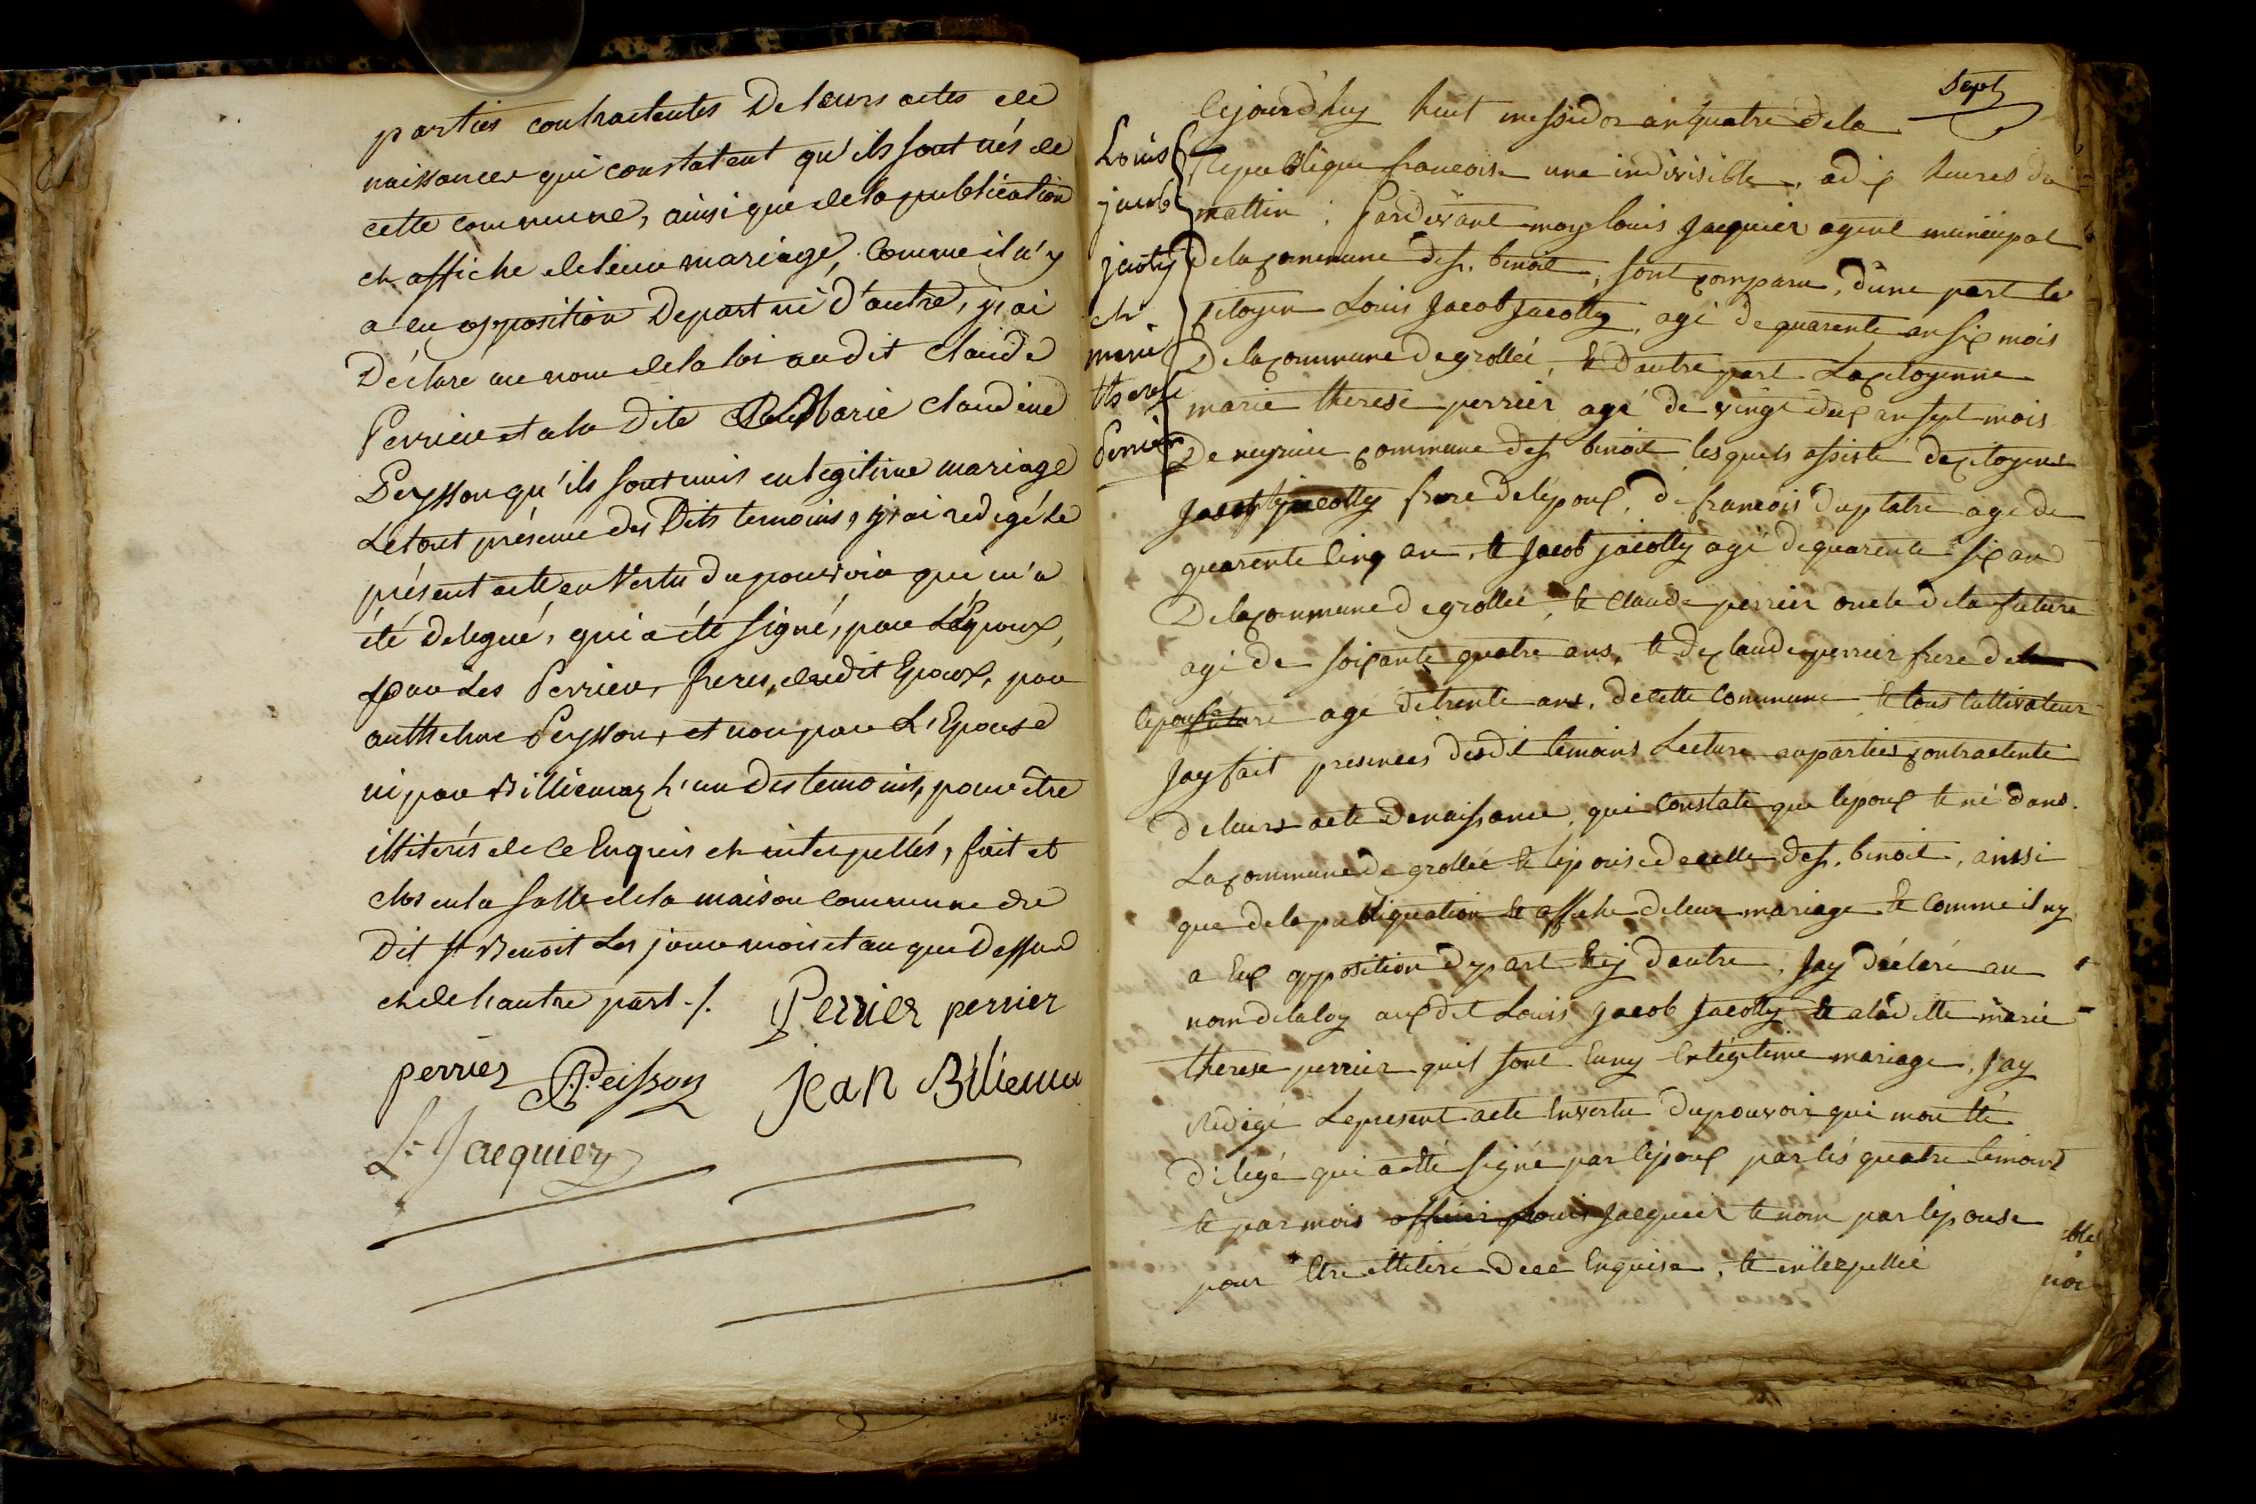 parties contractentes De leurs actes de
naissances qui constatent qu'ils sont nés de
cette commune, ainsi que de la publication
et affiche de leur mariage, comme il n'y
a eu opposition De part ni d'autre, j'ai
Déclaré au nom de la loi au dit claude
Perrier et a la Dite Marie claudine
Peysson qu'ils sont unis en legitime mariage
Le tout présence des Dits temoins, j'ai redigé le
présent acte en Vertu du pouvoir qui m'a
été delegué, qui a été signé, par L'Epoux,
par Les Perrier, freres, dudit Epoux, par
anthelme Peysson, et non par L'Epouse
ni par Billiemaz l'un des temoins, pour être
illiterés de ce Enquis et interpellés, fait et
clos en la salle de la maison commune du
Dit st Benoit Les jour mois et an que Dessus
et de l'autre part ./. Perrier perrier
perrier Peisson jean Biliema
L. Jacquier
Sept
Louis
jacob
jacoty
et
marie
therese
Perrier
Cejourd'huy huit messidor an quatre de la
Republique francoise une indivisible, a dix heures du
mattin; Pardevant moy louis Jacquier agent municipal
De la commune de st. benoit, sont comparu, d'une part le
citoyen Louis Jacob Jacotty, agé de quarente an six mois
De la commune de grollée, et d'autre part La citoyenne
marie therese perrier agé de vingt deux an sept mois
De neyrieu commune de st benoit lesquels assisté de citoyens
Jacob jacotty frere de l'époux, de francois duplatre age de
quarente cinq an, et Jacob jacotty agé de quarente six an
De la commune de grollée, et claude perrier oncle de la future
agé de soixante quatre ans, et de claude perrier frere de la
lepouse future agé de trente ans, de cette commune et tous cultivateur
Jay fait presences desdit temoins Lecture au parties contractente
de leurs acte de naissance, qui constate que l'époux et né dans
La commune de grollée et l'épouse de celle de st. benoit, ainsi
que de la publiquation et affiche de leur mariage et comme il ny
a Eux opposition de part ny d'autre, Jay déclaré au
nom de la loy aux dit Louis Jacob Jacotty et a la ditte marie
therese perrier quil sont Euny En légitime mariage, Jay
Redigé Le present acte En vertu du pouvoir qui mon été
délégé qui a etté signé par l'époux par les quatre témoins
et par mois officier Louis Jacquier et nom par l'épouse
pour Etre illitéré de ce Enquise, et interpellée